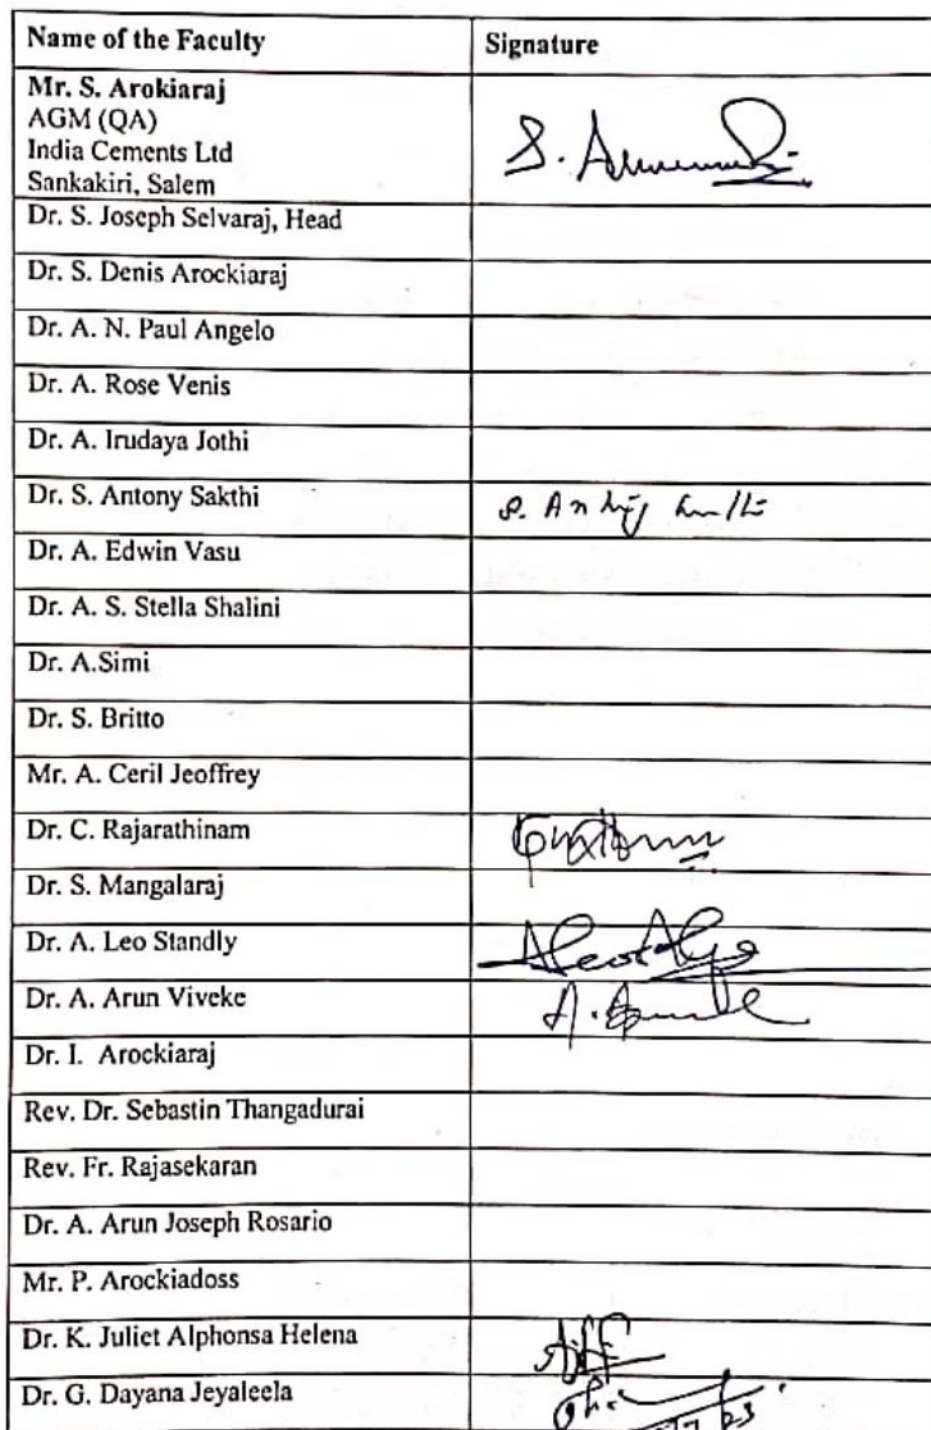 Name of the Faculty Signature
Mr. S. Arokiaraj
AGM (QA)
India Cements Ltd
Sankakiri, Salem
Dr. S. Joseph Selvaraj, Head
Dr. S. Denis Arockiaraj
Dr. A. N. Paul Angelo
Dr. A. Rose Venis
Dr. A. Irudaya Jothi
Dr. S. Antony Sakthi
Dr. A. Edwin Vasu
Dr. A. S. Stella Shalini
Dr. A.Simi
Dr. S. Britto
Mr. A. Ceril Jeoffrey
Dr. C. Rajarathinam
Dr. S. Mangalaraj
Dr. A. Leo Standly
Dr. A. Arun Viveke
Dr. I. Arockiaraj
Rev. Dr. Sebastin Thangadurai
Rev. Fr. Rajasekaran
Dr. A. Arun Joseph Rosario
Mr. P. Arockiadoss
Dr. K. Juliet Alphonsa Helena
Dr. G. Dayana Jeyaleela